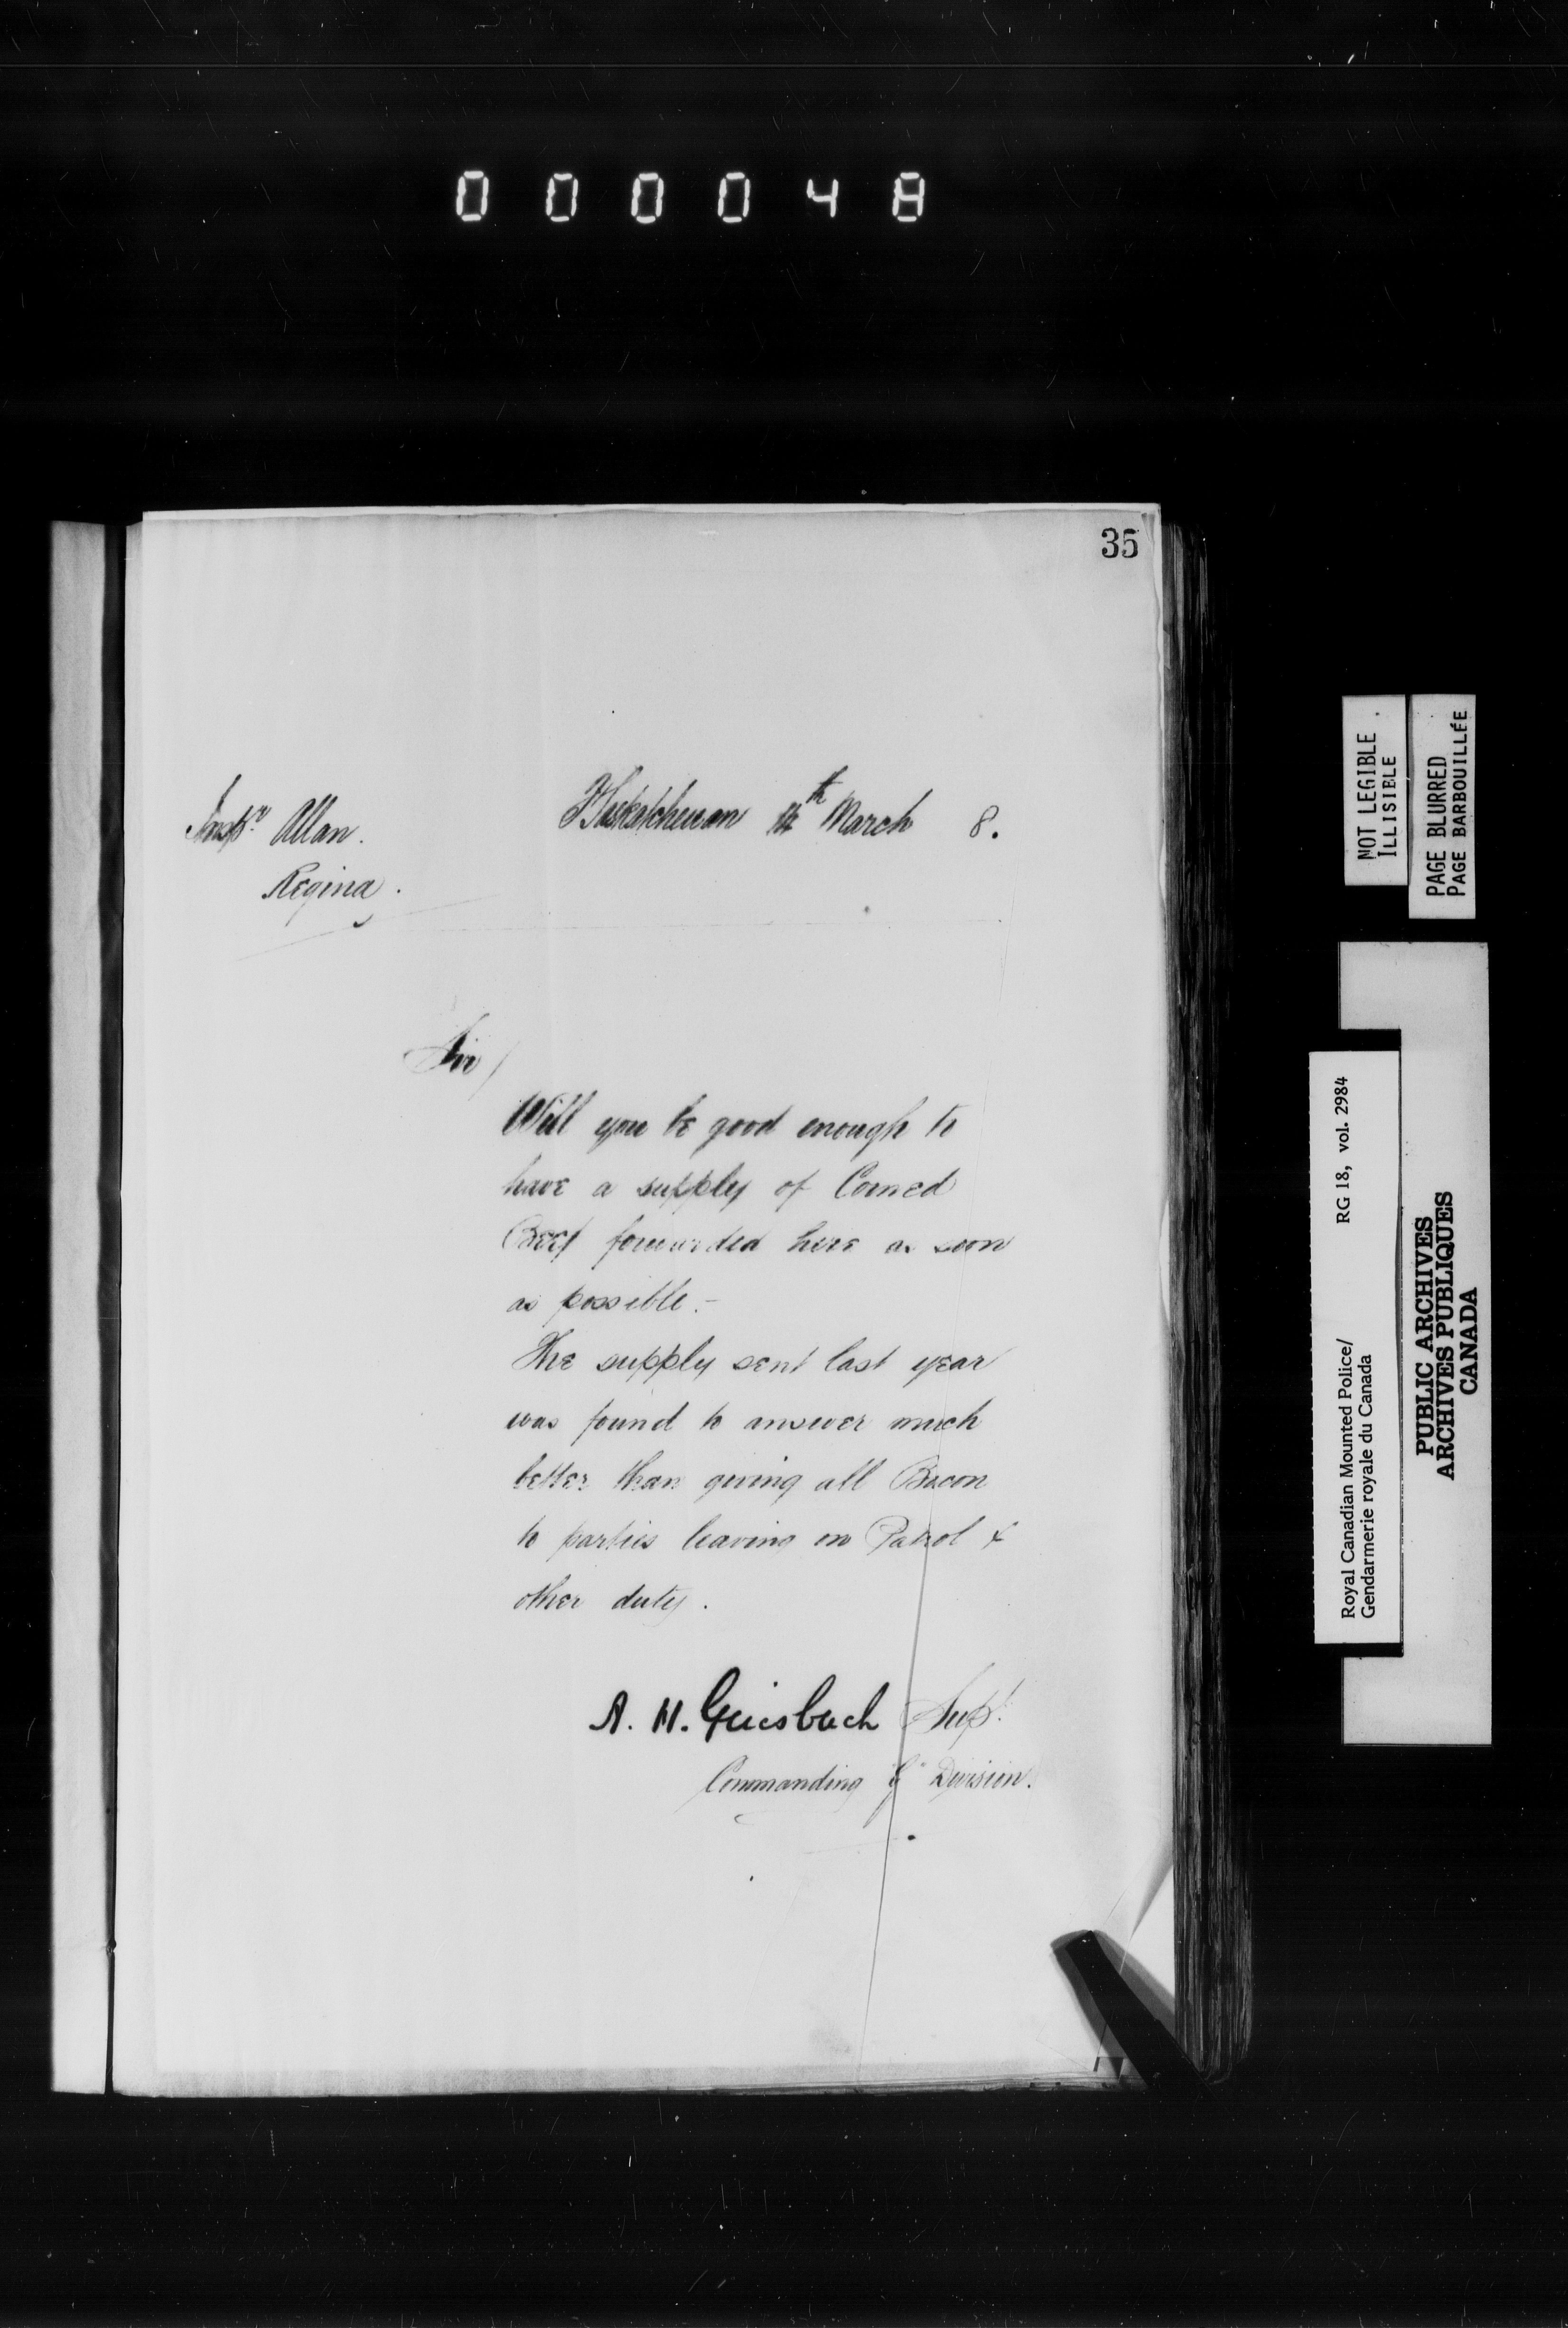 000048
35
Inspr. Allan.
Regina.
F Saskatchewan th March 8.
Sir/
Will you be good enough to
have a supply of Corned
Beef forwarded here as soon
as possible. -
The supply sent last year
was found to answer much
better than giving all Bacon
to parties leaving on Patrol &
other duty.
A. H. Griesbach Supt.
Commanding "G" Division.
NOT LEGIBLE
ILLISIBLE
PAGE BLURRED
PAGE BARBOUILLÉE
Royal Canadian Mounted Police/ RG 18, vol. 2984
Gendarmerie royale du Canada
PUBLIC ARCHIVES
ARCHIVES PUBLIQUES
CANADA